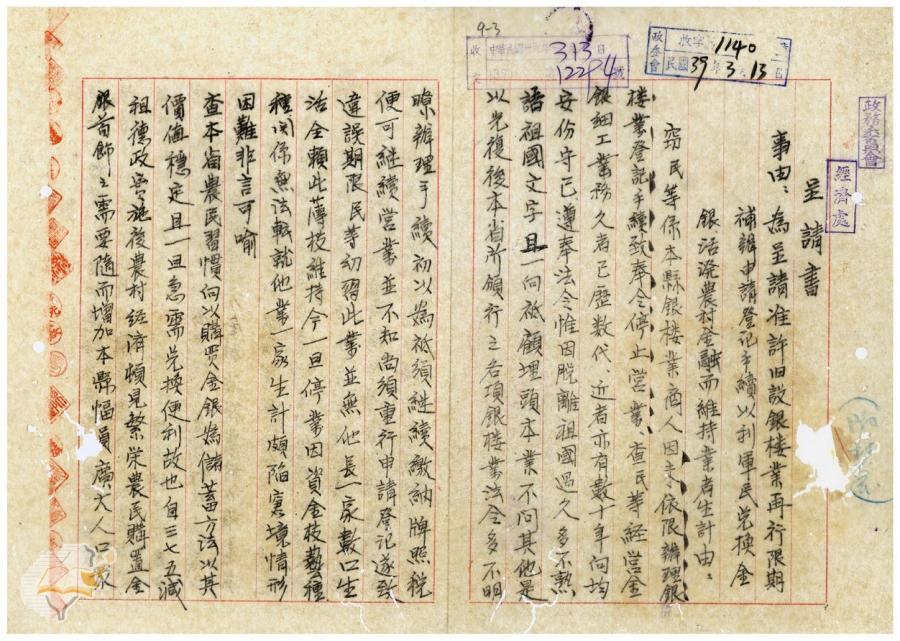 9-3
收 中華民國 年 3 13 日
12294 號
政委會 收字 1140
民國 39 年 3 月 13 日
政務委員會
經濟處
呈請書
事由：為呈請准許旧設銀樓業再行限期
補辦申請登記手續以利軍民兌換金
銀活潑農村金融而維持業者生計由：
竊民等係本縣銀樓業商人因未依限辦理銀
樓業登記手續致奉令停止營業、查民等經營金
銀細工業務久者已歷數代、近者亦有數十年向均
安份守己遵奉法令惟因脫離祖國過久多不熟
諳祖國文字且一向祇顧埋頭本業不問其他是
以光復後本省所頒行之各項銀樓業法令多不明
瞭辦理手續初以為祇須継續繳納牌照稅
便可継續營業並不知尚須重行申請登記遂致
違誤期限民等幼習此業並無他長一家數口生
活全賴此薄技維持今一旦停業因資金技藝種
種関係無法転就他業一家生計頗陷窘境情形
困難非言可喻
查本省農民習慣向以購買金銀為儲蓄方法以其
價值穩定且一旦急需兌換便利故也自三七五減
租德政實施後農村經濟頓見繁栄農民購置金
銀首飾之需要隨而增加本縣幅員廣大人口眾